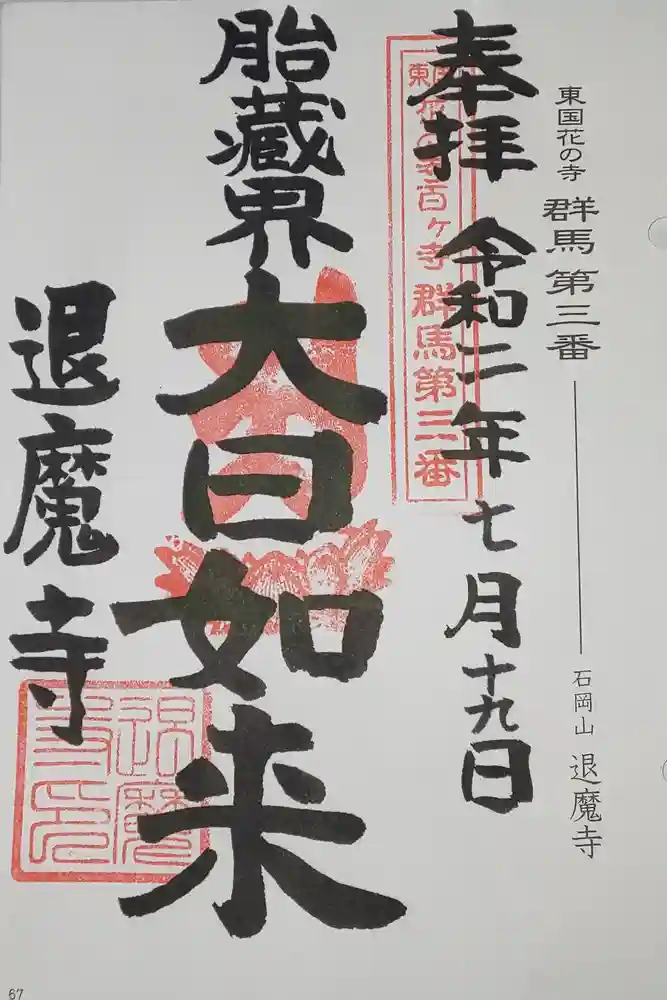 東国花の寺 群馬第三番
石岡山 退魔寺
奉拝 令和二年七月十九日
東国花の寺百ヶ寺 群馬第三番
胎蔵界
大日如来
退魔寺
退魔寺印
67